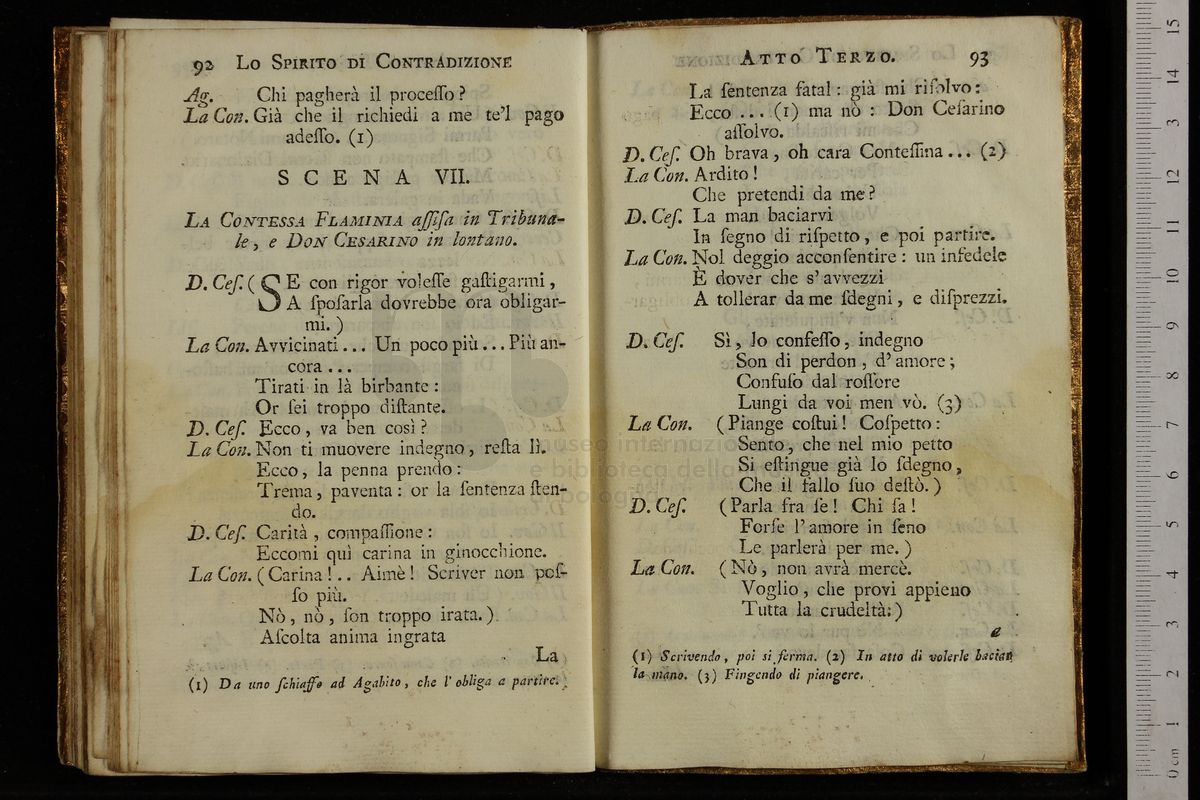 92 Lo Spirito di Contradizione
Ag. Chi pagherà il proceſſo?
La Con. Già che il richiedi a me te'l pago
adeſſo. (1)
SCENA VII.
La Contessa Flaminia aſſiſa in Tribuna-
le, e Don Cesarino in lontano.
D. Ceſ. ( SE con rigor voleſſe gaſtigarmi,
A ſpoſarla dovrebbe ora obligar-
mi. )
La Con. Avvicinati... Un poco più... Più an-
cora ...
Tirati in là birbante:
Or ſei troppo diſtante.
D. Ceſ. Ecco, va ben così?
La Con. Non ti muovere indegno, reſta lì.
Ecco, la penna prendo:
Trema, paventa: or la ſentenza ſten-
do.
D. Ceſ. Carità, compaſſione:
Eccomi quì carina in ginocchione.
La Con. (Carina!.. Aimè! Scriver non poſ-
ſo più.
Nò, nò, ſon troppo irata.)
Aſcolta anima ingrata
La
(1) Da uno ſchiaffo ad Agabito, che l'obliga a partire.
Atto Terzo. 93
La ſentenza fatal: già mi riſolvo:
Ecco ... (1) ma nò : Don Ceſarino
aſſolvo.
D. Ceſ. Oh brava, oh cara Conteſſina... (2)
La Con. Ardito!
Che pretendi da me?
D. Ceſ. La man baciarvi
In ſegno di riſpetto, e poi partire.
La Con. Nol deggio acconſentire: un infedele
È dover che s'avvezzi
A tollerar da me ſdegni, e diſprezzi.
D. Ceſ. Sì, lo confeſſo, indegno
Son di perdon, d'amore;
Confuſo dal roſſore
Lungi da voi men vò. (3)
La Con. (Piange coſtui! Coſpetto:
Sento, che nel mio petto
Si eſtingue già lo ſdegno,
Che il fallo ſuo deſtò.)
D. Ceſ. (Parla fra ſe! Chi ſa!
Forſe l'amore in ſeno
Le parlerà per me. )
La Con. (Nò, non avrà mercè.
Voglio, che provi appieno
Tutta la crudeltà:)
a
(1) Scrivendo, poi si ferma. (2) In atto di volerle baciar
la mano. (3) Fingendo di piangere.
museo internazionale
e biblioteca della musica
di bologna
15
14
13
12
11
10
9
8
7
6
5
4
3
2
1
0 cm